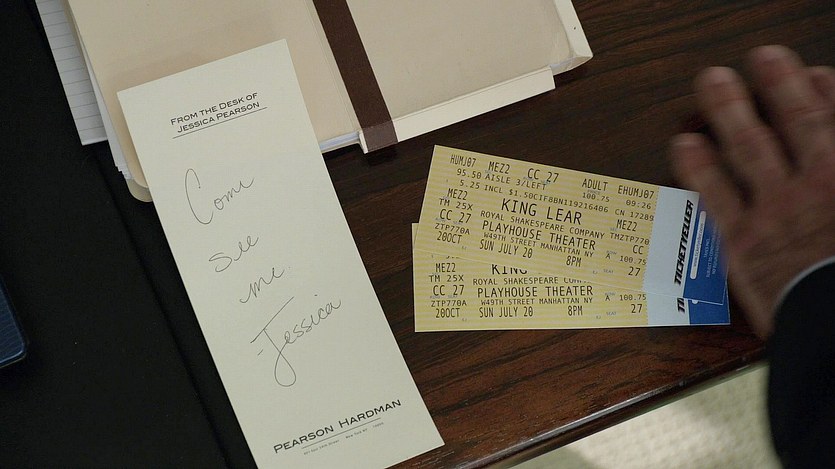 FROM THE DESK OF
JESSICA PEARSON
Come
see
me
-Jessica
PEARSON HARDMAN
HUMJ07 MEZ2 CC 27 ADULT EHUMJ07
95.50 AISLE 3/LEFT 100.75 09:26
5.25 INCL $1.50CIF8BN119216406 CN 17289
MEZ2 KING LEAR MEZ2
TM 25X ROYAL SHAKESPEARE COMPANY TMZTP770
CC 27 PLAYHOUSE THEATER CC
ZTP770A W49TH STREET MANHATTAN NY A 100.75
20OCT SUN JULY 20 8PM 27
TICKETNELLER
MEZ2 KING
TM 25X ROYAL SHAKESPEARE COM
CC 27 PLAYHOUSE THEATER
ZTP770A W49TH STREET MANHATTAN NY A 100.75
20OCT SUN JULY 20 8PM 27